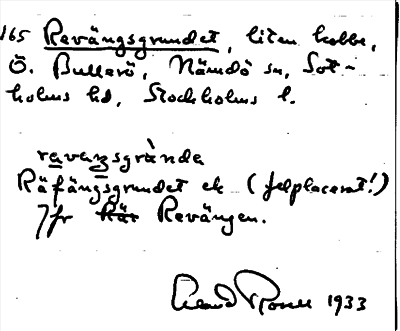 165 Revängsgrundet, liten kobbe,
Ö. Bullerö, Nämdö sn, Sot-
holms hd, Stockholms l.
ravaŋsgrànde
Räfängsgrundet ek (felplacerat!)
Jfr Revängen.
1933